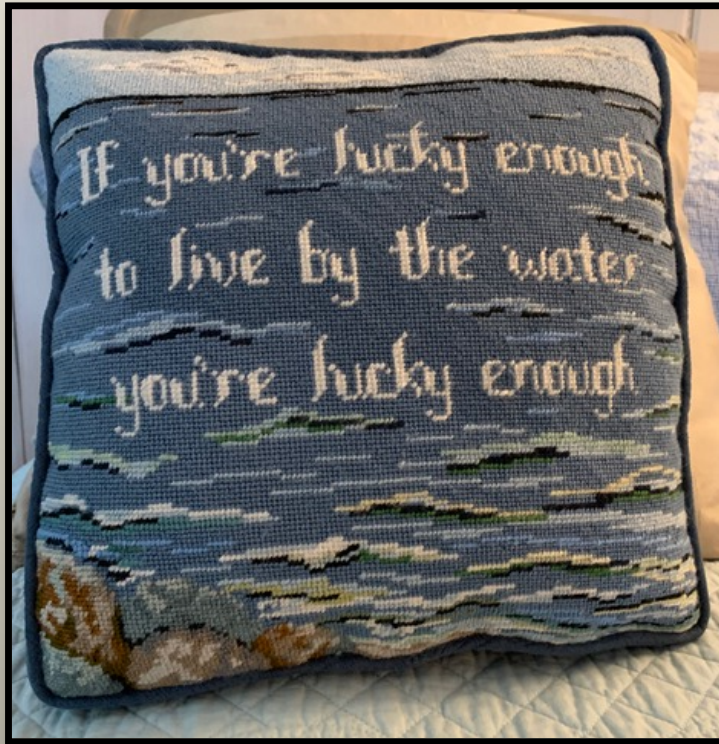 If you're lucky enough
to live by the water
you're lucky enough